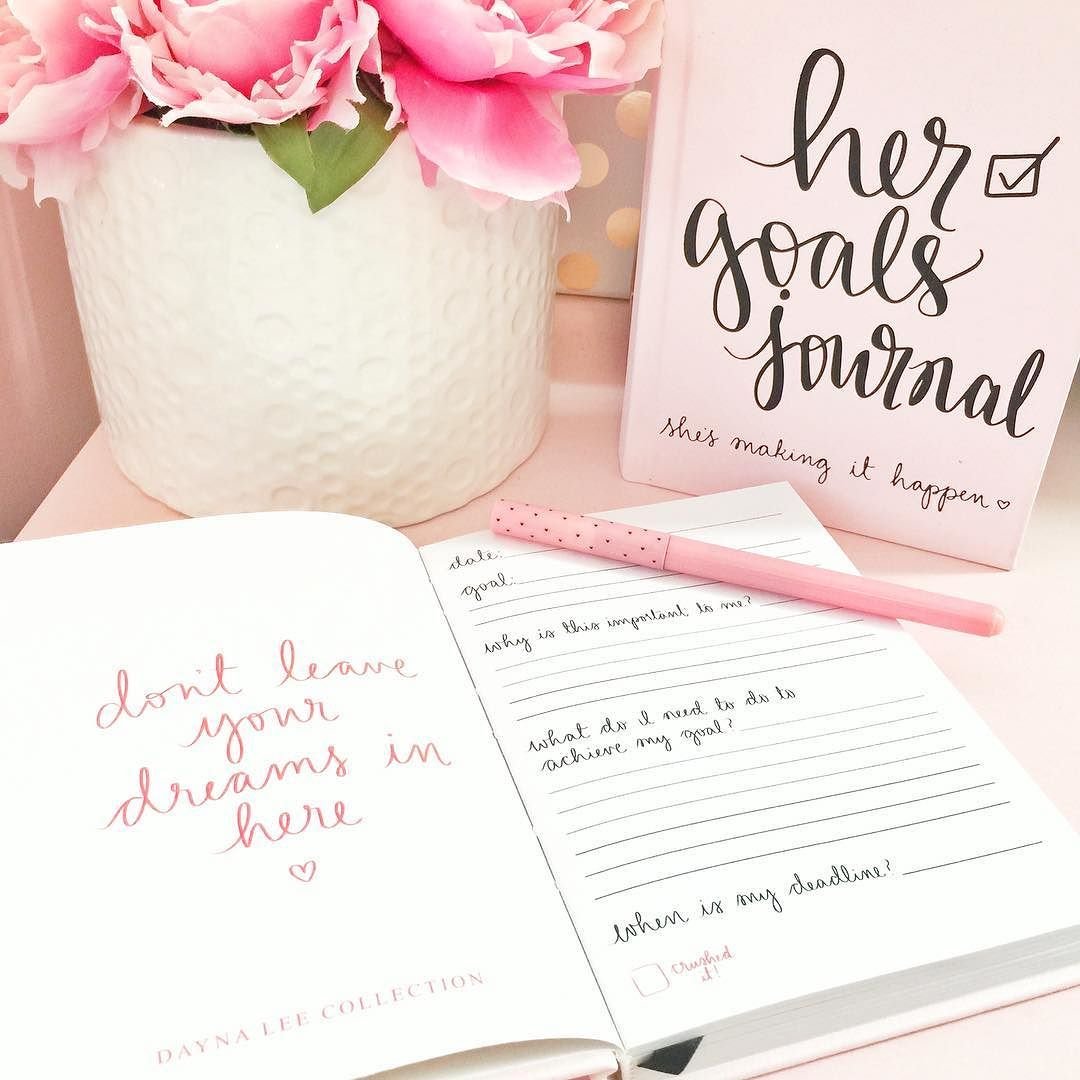 her
goals
journal
she's making it happen
don't leave
your
dreams in
here
DAYNA LEE COLLECTION
date:
goal:
why is this important to me?
what do I need to do to
achieve my goal?
when is my deadline?
crushed
it!